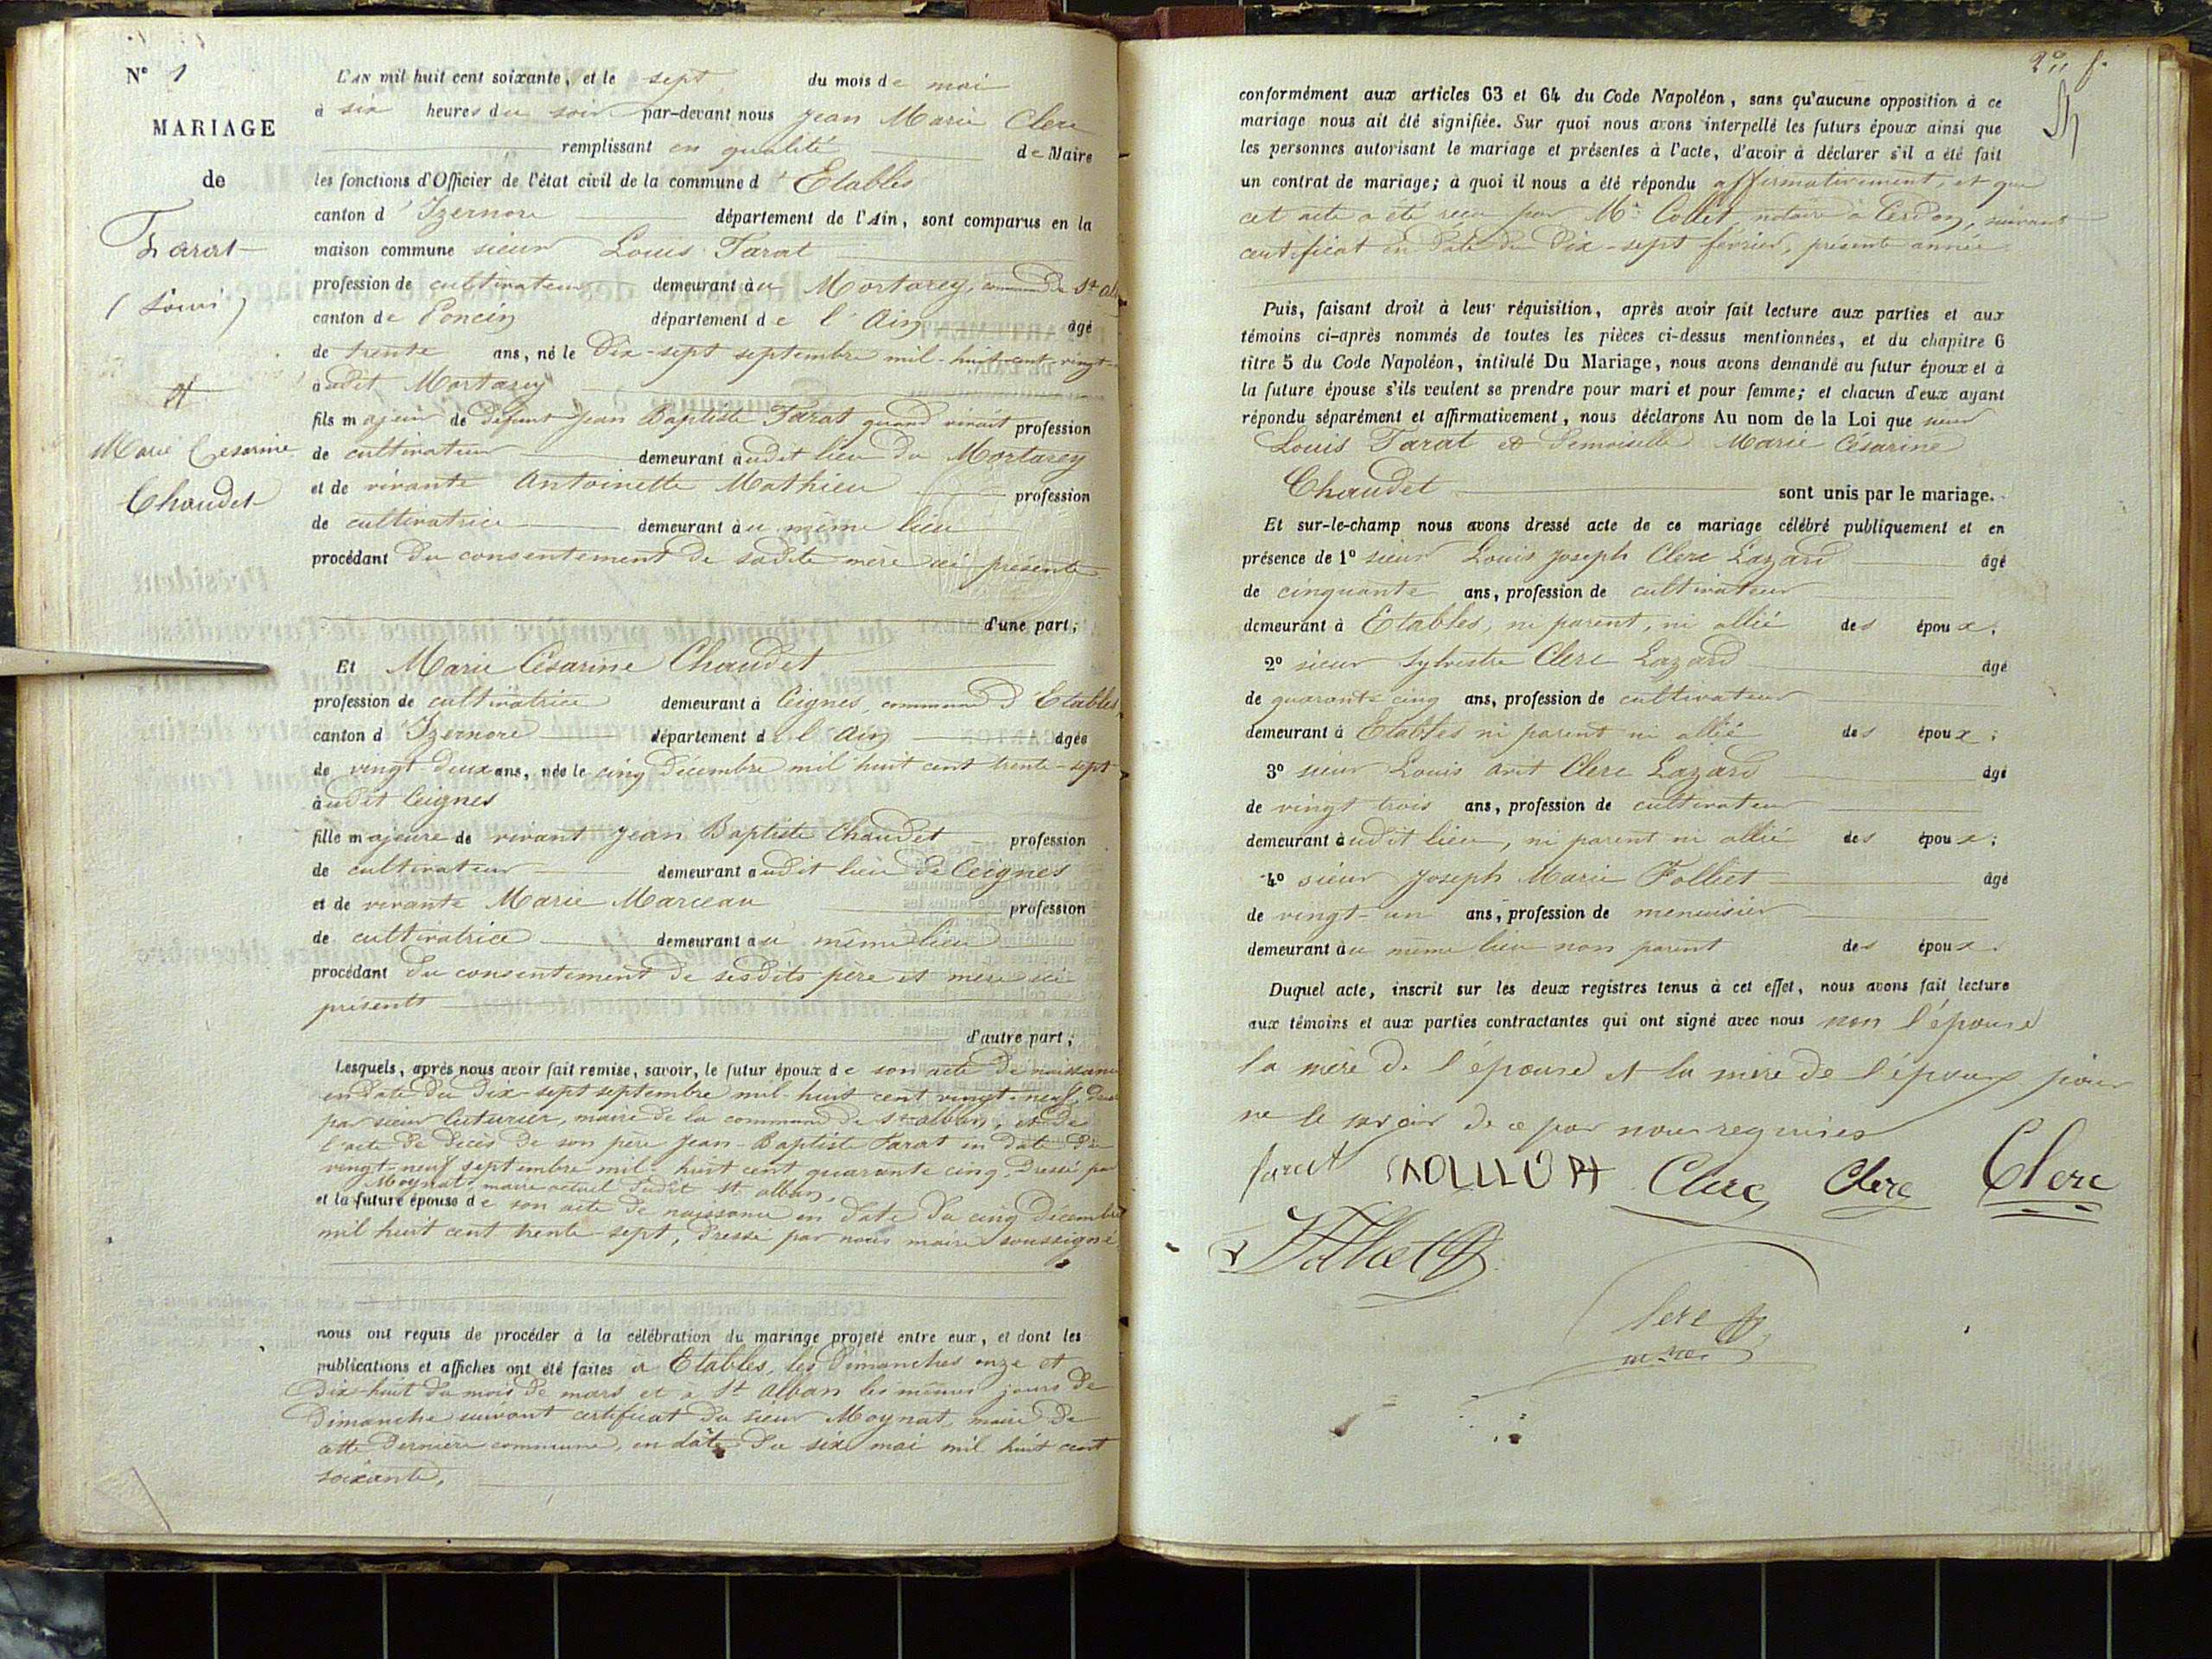 N° 1
MARIAGE
de
Tarat
(Louis)
et
Marie Césarine
Chaudet
L'AN mil huit cent soixante, et le sept du mois de mai
à six heures du soir par-devant nous Jean Marie Clerc
remplissant en qualité de Maire
les fonctions d'Officier de l'état civil de la commune d'Etables
canton d'Izernore département de l'Ain, sont comparus en la
maison commune sieur Louis Tarat
profession de cultivateur demeurant au Mortarey, commune de St Alb
canton de Poncin département de l'Ain âgé
de trente ans, né le dix-sept septembre mil-huit-cent vingt-
audit Mortarey
fils majeur de défunt Jean Baptiste Tarat quand vivait profession
de cultivateur demeurant audit lieu du Mortarey
et de vivante Antoinette Mathieu profession
de cultivatrice demeurant au même lieu
procédant du consentement de sadite mère ici présente
d'une part;
Et Marie Césarine Chaudet
profession de cultivatrice demeurant à Ceignes, commune d'Etables
canton d'Izernore département de l'Ain âgée
de vingt-deux ans, née le cinq décembre mil huit cent trente-sept
audit Ceignes
fille majeure de vivant Jean Baptiste Chaudet profession
de cultivateur demeurant audit lieu de Ceignes
et de vivante Marie Marceau profession
de cultivatrice demeurant au même lieu
procédant du consentement de sesdits père et mère ici
présents
d'autre part;
Lesquels, après nous avoir fait remise, savoir, le futur époux de son acte de naissance
en date du dix-sept septembre mil-huit cent vingt-neuf, dressé
par sieur Cuturier, maire de la commune de St alban, et de
l'acte de décès de son père Jean-Baptiste Tarat en date du
vingt-neuf septembre mil-huit cent quarante cinq, dressé par
Moynat, maire actuel dudit St alban,
et la future épouse de son acte de naissance en date du cinq décembre
mil huit cent trente-sept, dressé par nous maire soussigné
nous ont requis de procéder à la célébration du mariage projeté entre eux, et dont les
publications et affiches ont été faites à Etables, les dimanches onze et
dix-huit du mois de mars et à St Alban les mêmes jours de
dimanche suivant certificat du sieur Moynat, maire de
cette dernière commune, en date du six mai mil huit cent
soixante,
conformément aux articles 63 et 64 du Code Napoléon, sans qu'aucune opposition à ce
mariage nous ait été signifiée. Sur quoi nous avons interpellé les futurs époux ainsi que
les personnes autorisant le mariage et présentes à l'acte, d'avoir à déclarer s'il a été fait
un contrat de mariage; à quoi il nous a été répondu affirmativement, et que
cet acte a été reçu par Me Collet notaire à Cerdon, suivant
certificat en date du dix-sept février, présente année
Puis, faisant droit à leur réquisition, après avoir fait lecture aux parties et aux
témoins ci-après nommés de toutes les pièces ci-dessus mentionnées, et du chapitre 6
titre 5 du Code Napoléon, intitulé Du Mariage, nous avons demandé au futur époux et à
la future épouse s'ils veulent se prendre pour mari et pour femme; et chacun d'eux ayant
répondu séparément et affirmativement, nous déclarons Au nom de la Loi que sieur
Louis Tarat et Demoiselle Marie Césarine
Chaudet sont unis par le mariage.
Et sur-le-champ nous avons dressé acte de ce mariage célébré publiquement et en
présence de 1° sieur Louis Joseph Clerc Lazard âgé
de cinquante ans, profession de cultivateur
demeurant à Etables, ni parent, ni allié des époux;
2° sieur Sylvestre Clerc Lazard âgé
de quarante cinq ans, profession de cultivateur
demeurant à Etables ni parent ni allié des époux;
3° sieur Louis ant Clerc Lazard âgé
de vingt trois ans, profession de cultivateur
demeurant audit lieu, ni parent ni allié des époux;
4° sieur Joseph Marie Folliet âgé
de vingt-un ans, profession de menuisier
demeurant au même lieu non parent des époux.
Duquel acte, inscrit sur les deux registres tenus à cet effet, nous avons fait lecture
aux témoins et aux parties contractantes qui ont signé avec nous non l'épouse
la mère de l'épouse et la mère de l'époux pour
ne le savoir de ce par nous requises
farat Clerc Clerc Clerc
Folliet
Clerc
maire